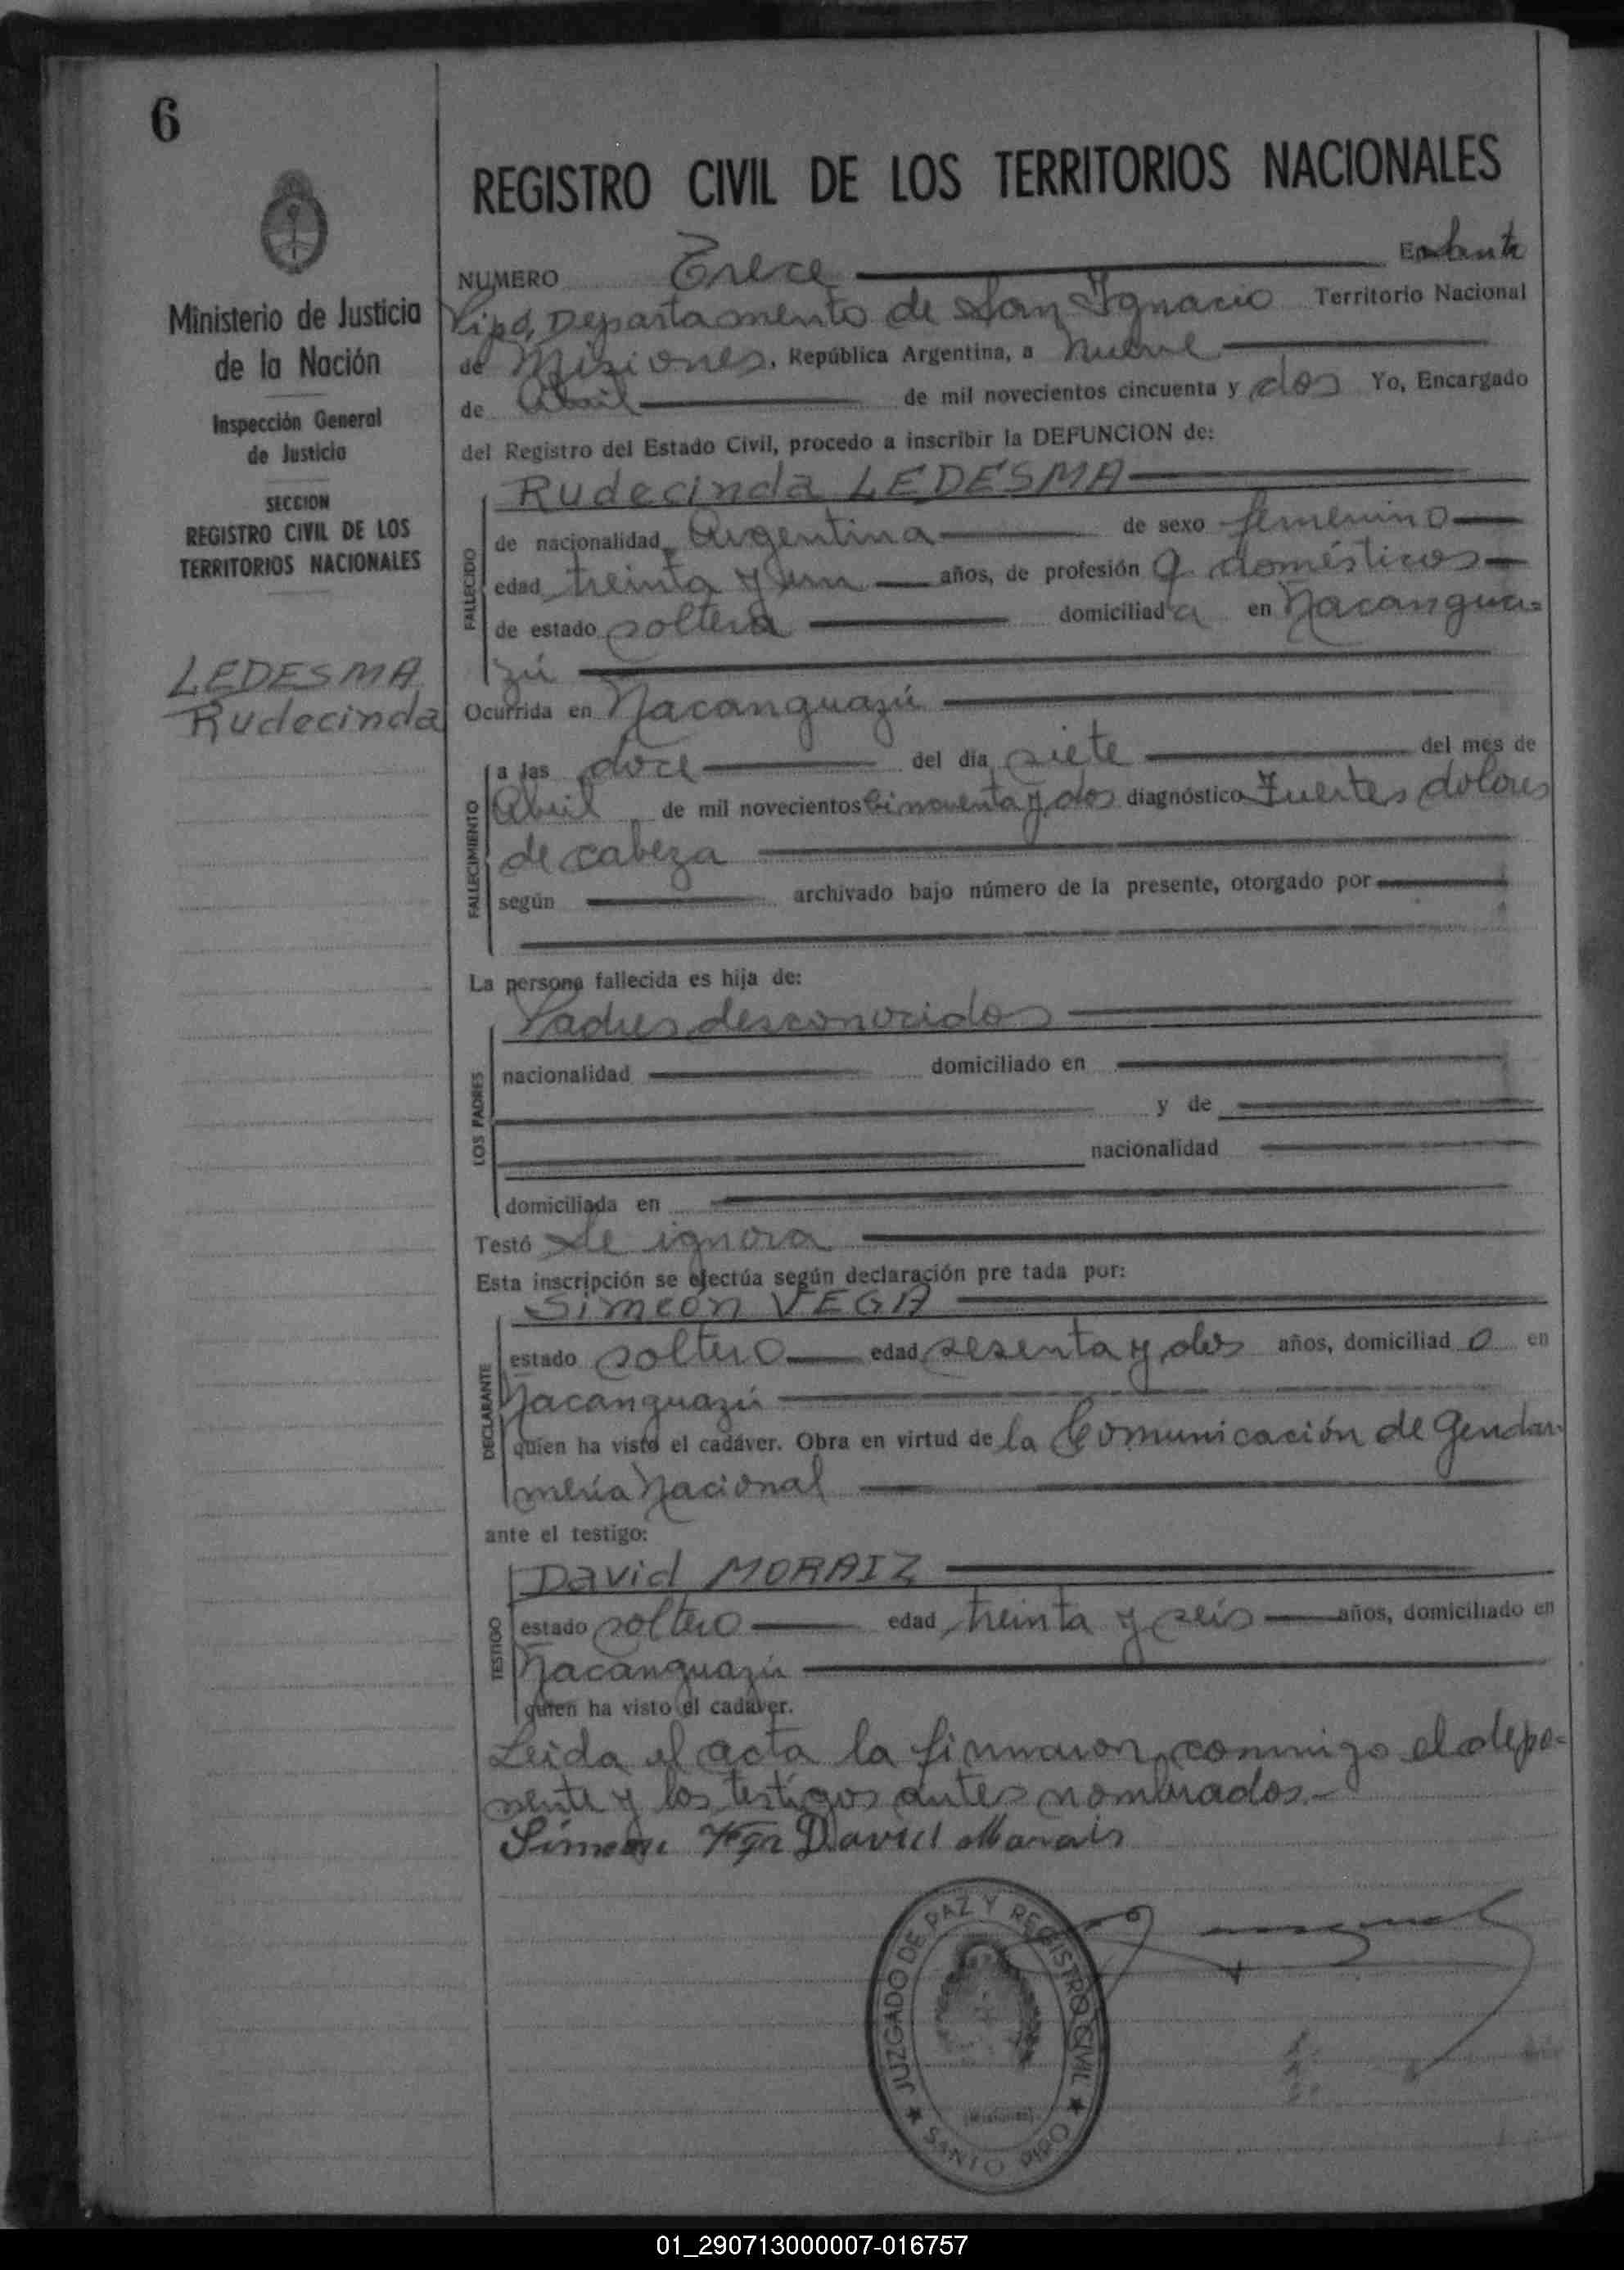 6
Ministerio de Justicia
de la Nación
Inspección General
de Justicia
SECCION
REGISTRO CIVIL DE LOS
TERRITORIOS NACIONALES
LEDESMA
Rudecinda
REGISTRO CIVIL DE LOS TERRITORIOS NACIONALES
NUMERO Trece En Santo
Pipó, Departamento de San Ignacio Territorio Nacional
de Misiones, República Argentina, a nueve
de Abril de mil novecientos cincuenta y dos Yo, Encargado
del Registro del Estado Civil, procedo a inscribir la DEFUNCION de:
Rudecinda LEDESMA
FALLECIDO
de nacionalidad Argentina de sexo femenino
edad treinta y un años, de profesión Q. domésticos
de estado soltera domiciliada en Ñacangua=
zú
Ocurrida en Ñacanguazú
FALLECIMIENTO
a las doce del día siete del mes de
Abril de mil novecientos Cincuenta y dos diagnóstico Fuertes dolores
de cabeza
según archivado bajo número de la presente, otorgado por
La persona fallecida es hija de:
Padres desconocidos
LOS PADRES
nacionalidad domiciliado en
y de
nacionalidad
domiciliada en
Testó Se ignora
Esta inscripción se efectúa según declaración pre tada por:
Simeón VEGA
DECLARANTE
estado soltero edad sesenta y dos años, domiciliado en
Ñacanguazú
quien ha visto el cadáver. Obra en virtud de la Comunicación de Gendar-
mería Nacional
ante el testigo:
David MORAIZ
TESTIGO
estado soltero edad treinta y seis años, domiciliado en
Ñacanguazú
quien ha visto el cadáver.
Leida el acta la firmaron conmigo el depo=
nente y los testigos antes nombrados.-
Simeon David Morais
JUZGADO DE PAZ Y REGISTRO CIVIL
(Misiones)
SANTO PIPO
01_290713000007-016757